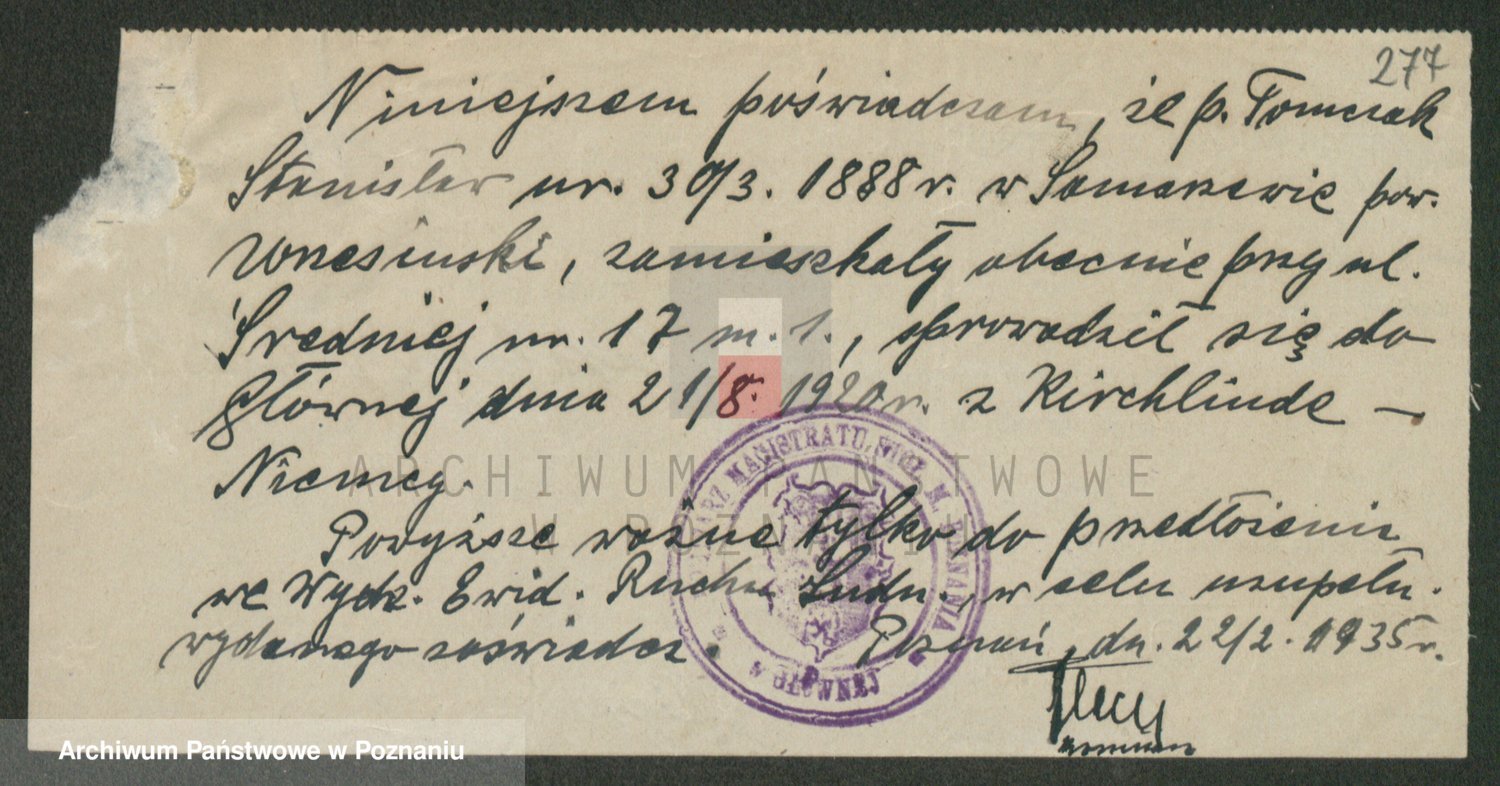 277
Niniejszem poświadczam, że p. Tomczak
Stanisław ur. 30/3. 1888 r. w Samarzewie pow.
Wrzesiński, zamieszkały obecnie przy ul.
Średniej nr. 17 m. 1., sprowadził się do
Głównej dnia 21/8. 1920 r. z Kirchlinde —
Niemcy.
Powyższe ważne tylko do przedłożenia
we Wydz. Ewid. Ruchu Ludn., w celu uzupełn.
wydanego zaświadcz. Poznań, dn. 22/2. 1935 r.
MAGISTRATU STOŁ. M. POZNANIA
W GŁÓWNEJ
ARCHIWUM PAŃSTWOWE
W POZNANIU
Archiwum Państwowe w Poznaniu